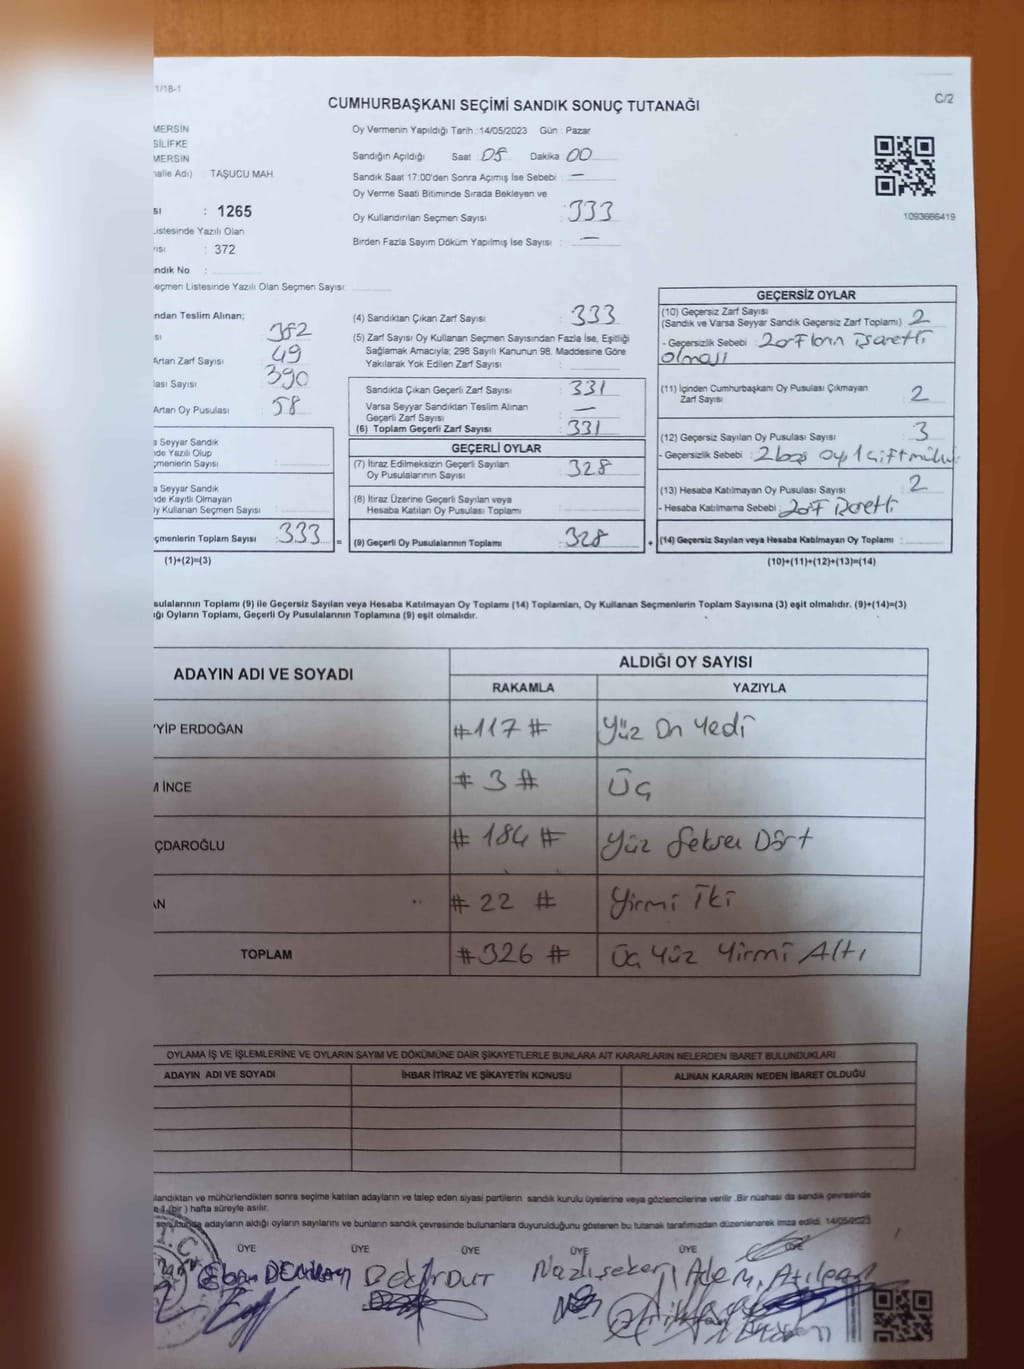 1/1B-1
CUMHURBAŞKANI SEÇİMİ SANDIK SONUÇ TUTANAĞI
C/2
MERSİN
SİLİFKE
MERSİN
halle Adı) TAŞUCU MAH.
sı : 1265
Listesinde Yazılı Olan
ısı : 372
ndık No :
eçmen Listesinde Yazılı Olan Seçmen Sayısı:
Oy Vermenin Yapıldığı Tarih : 14/05/2023 Gün : Pazar
Sandığın Açıldığı Saat 05 Dakika 00
Sandık Saat 17:00'den Sonra Açımış İse Sebebi : —
Oy Verme Saati Bitiminde Sırada Bekleyen ve
Oy Kullandırılan Seçmen Sayısı : 333
Birden Fazla Sayım Döküm Yapılmış İse Sayısı : —
1093666419
ndan Teslim Alınan;
sı 382
Artan Zarf Sayısı 49
ası Sayısı 390
Artan Oy Pusulası 58
a Seyyar Sandık
nde Yazılı Olup
çmenlerin Sayısı :
a Seyyar Sandık
nde Kayıtlı Olmayan
Oy Kullanan Seçmen Sayısı :
çmenlerin Toplam Sayısı : 333 =
(1)+(2)=(3)
(4) Sandıktan Çıkan Zarf Sayısı : 333
(5) Zarf Sayısı Oy Kullanan Seçmen Sayısından Fazla İse, Eşitliği
Sağlamak Amacıyla; 298 Sayılı Kanunun 98. Maddesine Göre
Yakılarak Yok Edilen Zarf Sayısı :
Sandıkta Çıkan Geçerli Zarf Sayısı : 331
Varsa Seyyar Sandıktan Teslim Alınan
Geçerli Zarf Sayısı : —
(6) Toplam Geçerli Zarf Sayısı : 331
GEÇERLİ OYLAR
(7) İtiraz Edilmeksizin Geçerli Sayılan
Oy Pusulalarının Sayısı : 328
(8) İtiraz Üzerine Geçerli Sayılan veya
Hesaba Katılan Oy Pusulası Toplamı :
(9) Geçerli Oy Pusulalarının Toplamı : 328 +
GEÇERSİZ OYLAR
(10) Geçersiz Zarf Sayısı
(Sandık ve Varsa Seyyar Sandık Geçersiz Zarf Toplamı) 2
- Geçersizlik Sebebi : işaretli
olması
(11) İçinden Cumhurbaşkanı Oy Pusulası Çıkmayan
Zarf Sayısı 2
(12) Geçersiz Sayılan Oy Pusulası Sayısı : 3
- Geçersizlik Sebebi : 2 boş oy 1 çift mühür
(13) Hesaba Katılmayan Oy Pusulası Sayısı : 2
- Hesaba Katılmama Sebebi :
(14) Geçersiz Sayılan veya Hesaba Katılmayan Oy Toplamı :
(10)+(11)+(12)+(13)=(14)
sulalarının Toplamı (9) ile Geçersiz Sayılan veya Hesaba Katılmayan Oy Toplamı (14) Toplamları, Oy Kullanan Seçmenlerin Toplam Sayısına (3) eşit olmalıdır. (9)+(14)=(3)
ığı Oyların Toplamı, Geçerli Oy Pusulalarının Toplamına (9) eşit olmalıdır.
ADAYIN ADI VE SOYADI
ALDIĞI OY SAYISI
RAKAMLA YAZIYLA
YYİP ERDOĞAN #117# Yüz On Yedi
M İNCE #3# Üç
ÇDAROĞLU #184# Yüz Seksen Dört
AN #22# Yirmi İki
TOPLAM #326# Üç Yüz Yirmi Altı
OYLAMA İŞ VE İŞLEMLERİNE VE OYLARIN SAYIM VE DÖKÜMÜNE DAİR ŞİKAYETLERLE BUNLARA AİT KARARLARIN NELERDEN İBARET BULUNDUKLARI
ADAYIN ADI VE SOYADI İHBAR İTİRAZ VE ŞİKAYETİN KONUSU ALINAN KARARIN NEDEN İBARET OLDUĞU
landıktan ve mühürlendikten sonra seçime katılan adayların ve talep eden siyasi partilerin sandık kurulu üyelerine veya gözlemcilerine verilir. Bir nüshası da sandık çevresinde
a 1 (bir ) hafta süreyle asılır.
sonucunda adayların aldığı oyların sayılarını ve bunların sandık çevresinde bulunanlara duyurulduğunu gösteren bu tutanak tarafımızdan düzenlenerek imza edildi. 14/05/2023
ÜYE ÜYE ÜYE ÜYE ÜYE
T.C.
Nazlı Adem